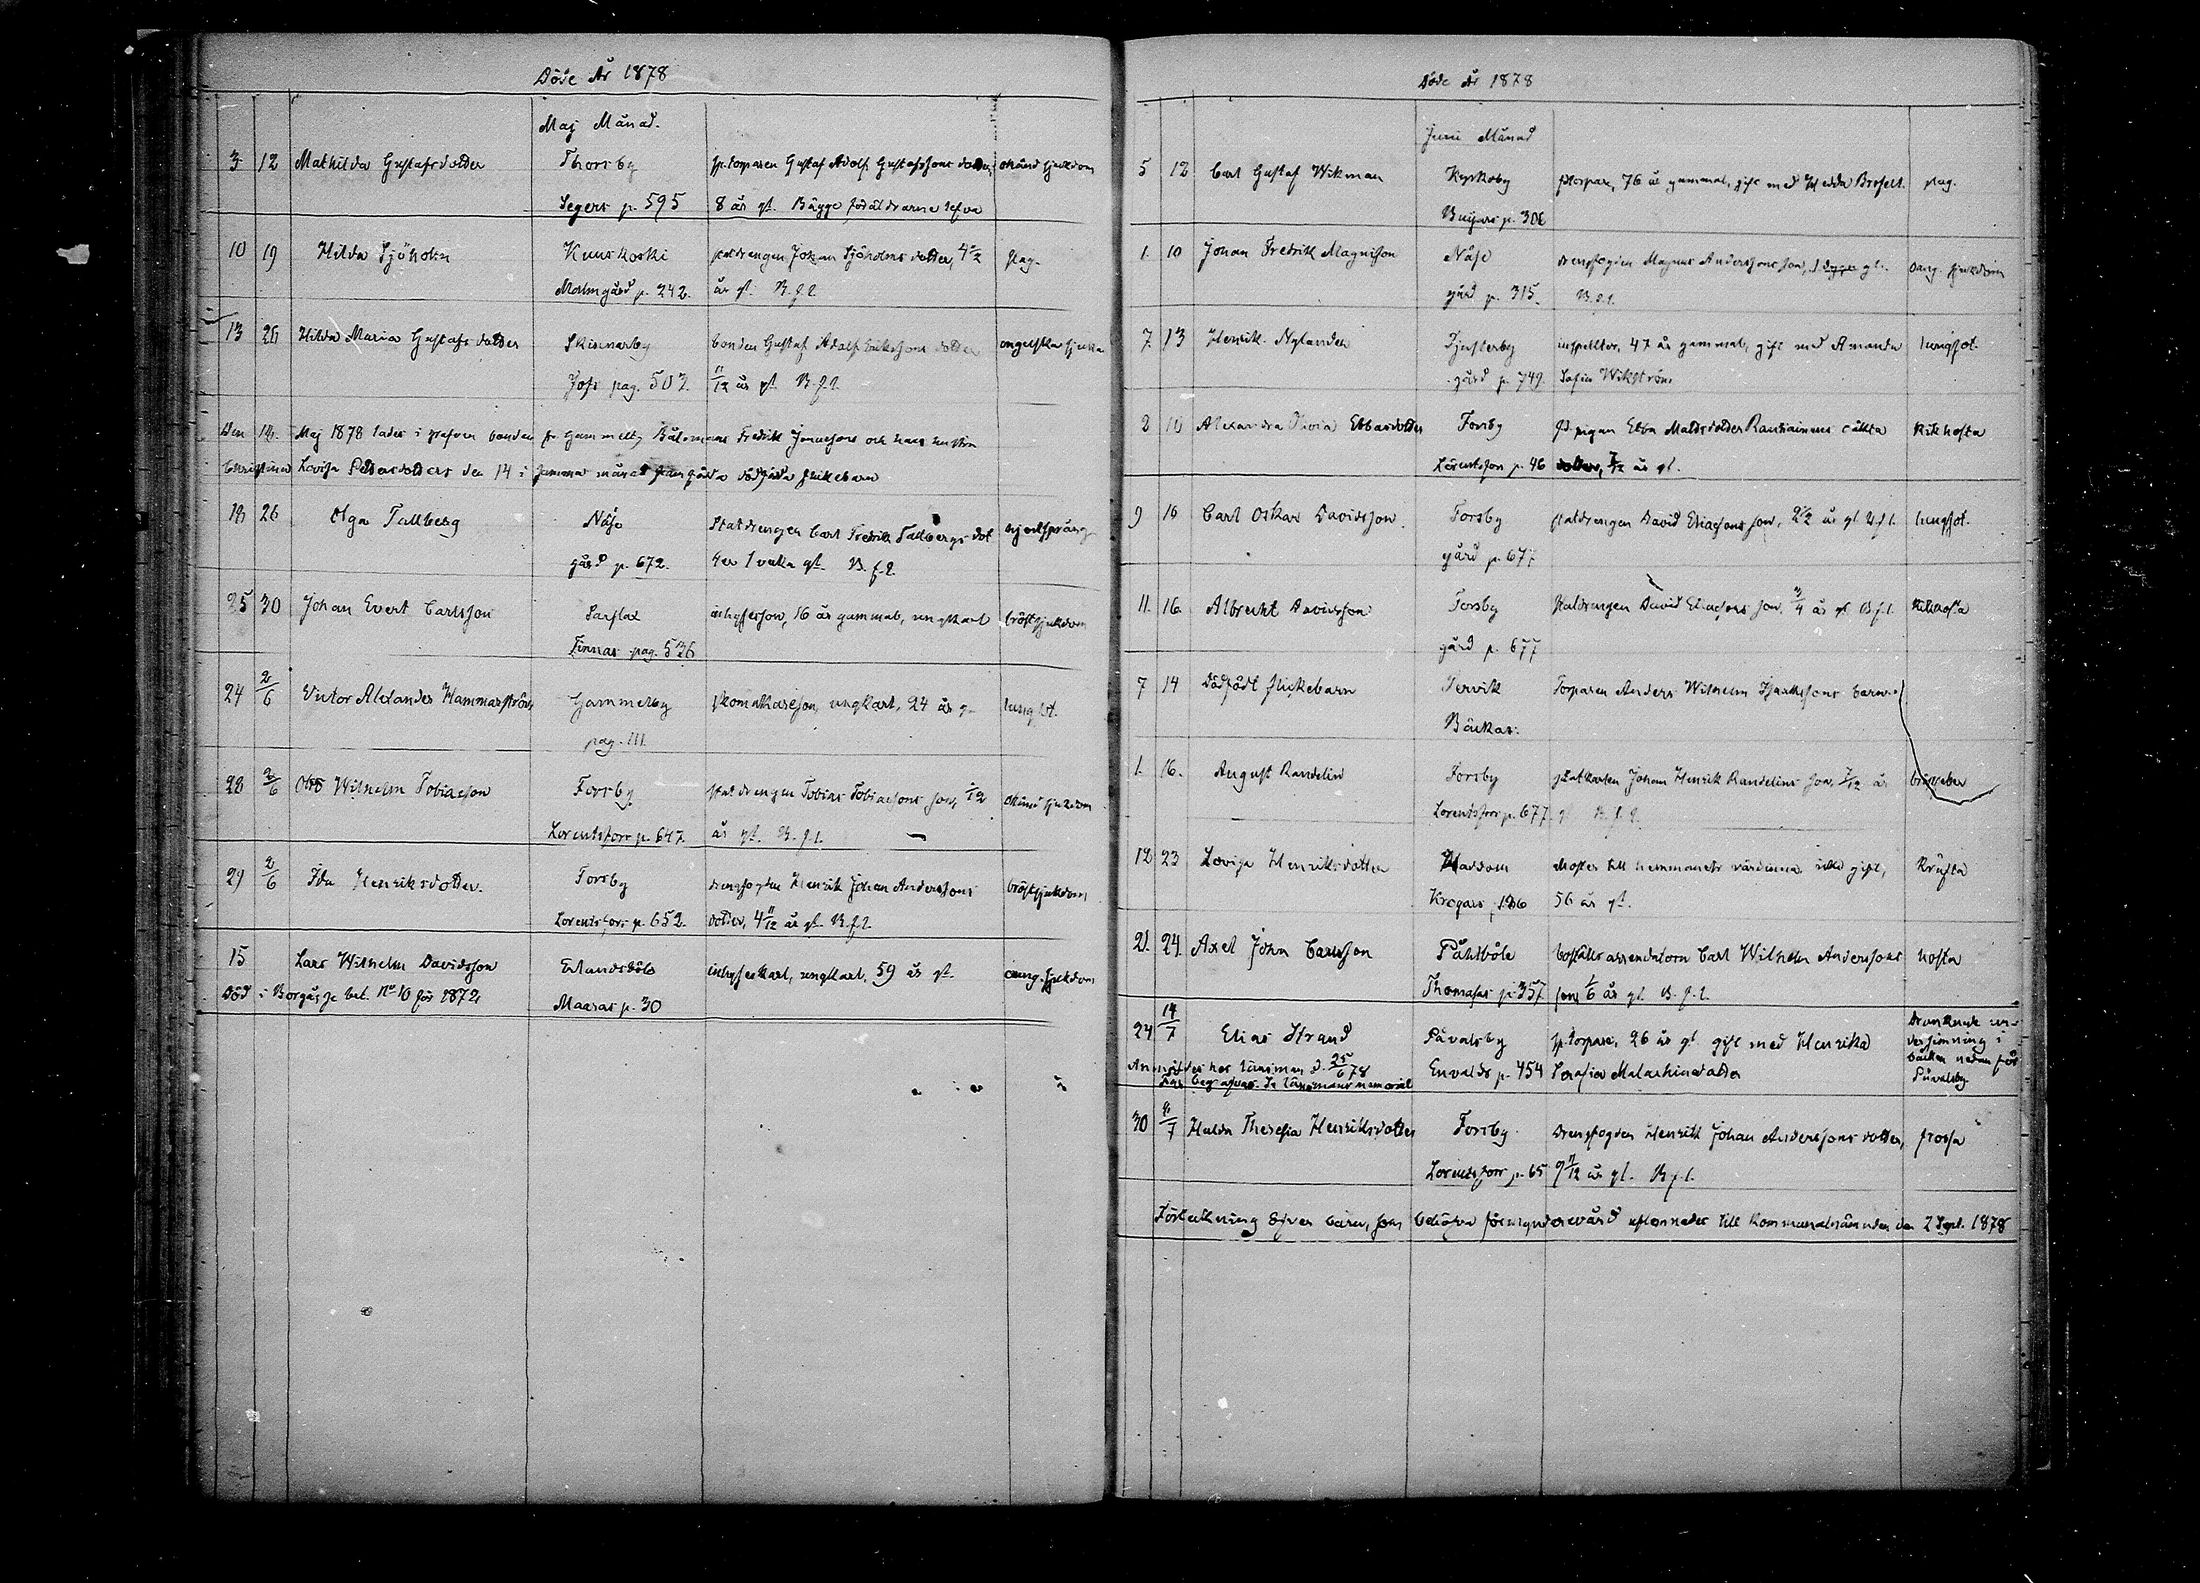 Döde År 1878
Maj Månad.
3 12 Mathilda Gustafsdotter Thorsby sp.torparen Gustaf Adolf Gustafssons dotter, okänd sjukdom
Segers p. 595 8 år gl. Bägge föräldrarne lefva
10 19 Hilda Sjöholm Kuuskoski statdrengen Johan Sjöholms dotter, 4 1/2 slag.
Malmgård p. 242. år gl. B. f. l.
13 26 Hilda Maria Gustafsdotter Skinnarby bonden Gustaf Adolf Erikssons dotter engelska sjukan
Jofs pag. 507. 11/12 år gl. B. f. l.
Den Maj 1878 lades i grafven bonden fr. Gammelby Fredrik och hans hustru
Christina Lovisa den 14 i samma månad framfödda dödfödda flickebarn
18 26 Olga Tallberg Näse Statdrengen Carl Fredrik Tallbergs dot
gård p. 672. ter 1 vecka gl. B. f. l.
25 30 Johan Evert Carlsson Sarflax inhysesson, 16 år gammal, ungkarl bröstsjukdom
Finnas pag. 536
24 2/6 Victor Alexander Hammarström Gammelby skomakareson, ungkarl, 24 år gl. lungsot.
pag. 111
28 2/6 Otto Wilhelm Tobiasson Forsby statdrengen Tobias Tobiassons son, /12 okänd sjukdom
Lorentsforr p. 647. år gl. B. f. l.
29 2/6 Ida Henriksdotter. Forsby drengfogden Henrik Johan Anderssons bröstsjukdom
Lorentsforr p. 652. dotter, 4 11/12 år gl. B. f. l.
15 Lars Wilhelm Davidsson Erlandsböle inhyseskarl, ungkarl, 59 år gl. sjukdom
Död i Borgå se bet. No 10 för 1872 Maaras p. 30
Döde År 1878
Juni Månad
5 12 Carl Gustaf Wikman Kyrkoby storpare, 76 år gammal, gift med Hedda Brofelt. slag.
p. 306
1. 10 Johan Fredrik Magnisson Näse drengfogden Magnus Anderssons son, gl. sjukdom
gård p. 315. B. f. l.
7. 13 Henrik Nylander Tjusterby inspektor, 47 år gammal, gift med Amanda lungsot.
gård p. 749. Sofia Wikström
2 10 Alexandra Olivia Ebbasdotter Forsby pigan Ebba Matsdotter oäkta kikhosta
Lorentsforr p. 46 dotter, 7/12 år gl.
9 16 Carl Oskar Davidsson Forsby statdrengen David Eliassons son, 2 1/2 år gl. B. f. l. lungsot.
gård p. 677
11. 16. Albrecht Davidsson Forsby statdrengen David Eliassons son, 3/4 år gl. B. f. l. kikhosta
gård p. 677
7 14 Dödfödt flickebarn Tervik Torparen Anders Wilhelm barn.
Bäckas.
1. 16. August Randelin Forsby statkarlen Johan Henrik Randelins son, 7/12 år
Lorentsforr p. 677 gl. B. f. l.
12 23 Lovisa Henriksdotter Hardom moster till hemmanets värdinna icke gift, kräfta
Krogars, 186 56 år gl.
21. 24. Axel John Carlsson Påhlböle boställsarrendatorn Carl Wilhelm Anderssons hosta
Thomasas p. 357 son, 1/6 år gl. B. f. l.
24 14/7 Elias Strand Påvalsby sp.torpare, 26 år gl. gift med Henrika Drunknade un-
der simning i
bäcken nedan för
Påvalsby
Anmäldes hos länsman d. 25/6 78 Envalds p. 454 Serafia Malachiasdotter
Får begrafvas. Se länsmans memorial
30 /7 Hulda Theresia Henriksdotter Forsby Drengfogden Henrik Johan Anderssons dotter, frossa
Lorentsforr p. 65 9/12 år gl. B. f. l.
Förteckning öfver barn, som behöfva förmyndarevård aflemnades till Kommunalnämnden den 2 Sept. 1878